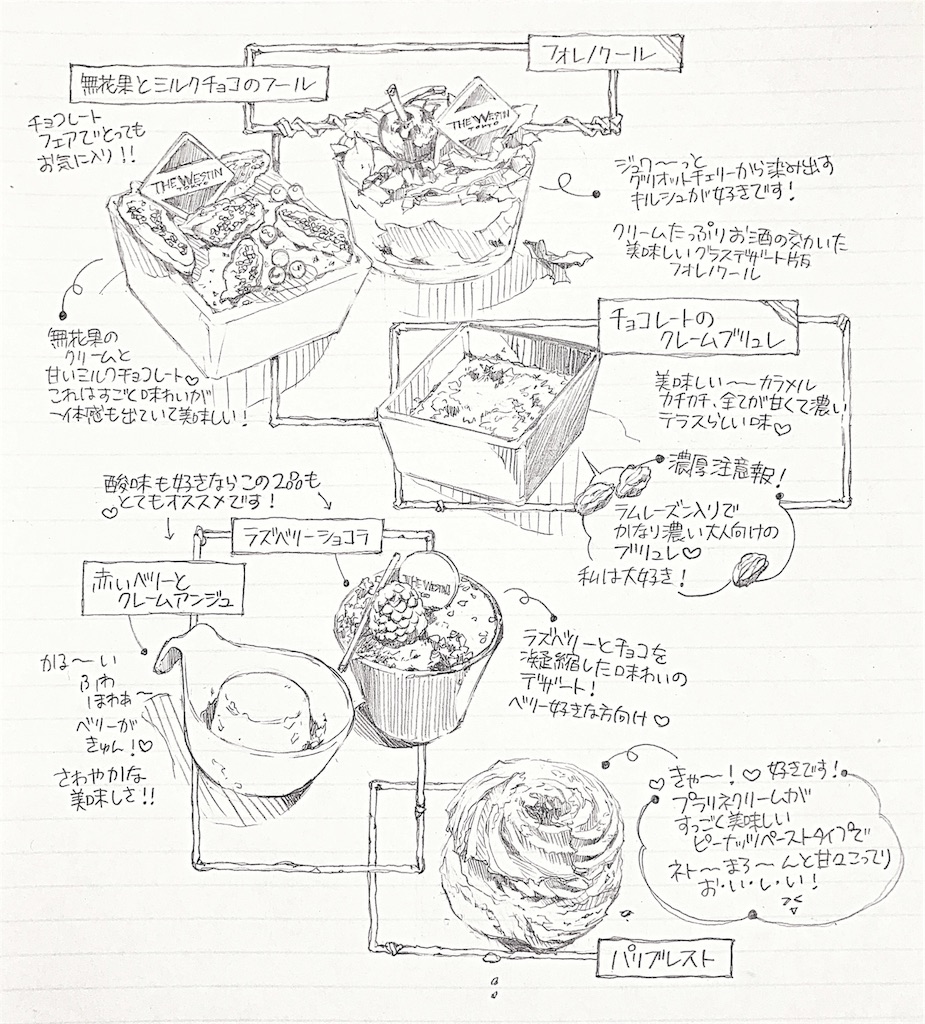 フォレノワール
無花果とミルクチョコのフール
チョコレート
フェアでとっても
お気に入り!!
THE WESTIN
TOKYO
THE WESTIN
TOKYO
ジュワ〜〜っと
グリオットチェリーから染み出す
キルシュが好きです!
クリームたっぷりお酒の効いた
美味しいグラスデザート版
フォレノワール
無花果の
クリームと
甘いミルクチョコレート♡
これはすごと味わいが
一体感も出ていて美味しい!
チョコレートの
クレームブリュレ
美味しい〜〜カラメル
カチカチ、全てが甘くて濃い
テラスらしい味♡
濃厚注意報!
ラムレーズン入りで
かなり濃い大人向けの
ブリュレ♡
私は大好き!
酸味も好きならこの2品も
♡とてもオススメです!
ラズベリーショコラ
赤いベリーと
クレームアンジュ
THE WESTIN
かる〜い
ふわ
ほわぁ〜
ベリーが
きゅん!♡
さわやかな
美味しさ!!
ラズベリーとチョコを
凝縮した味わいの
デザート!
ベリー好きな方向け♡
♡きゃ〜!♡好きです!
プラリネクリームが
すっごく美味しい
ピーナッツペーストタイプで
ネト〜まろ〜んと甘くこってり
お・い・し・い!
パリブレスト